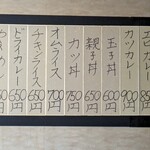 カレー 85
カツカレー 900円
玉子丼 600円
親子丼 650円
カツ丼 750円
オムライス 700円
チキンライス 650円
ドライカレー 650円
やきめし 650円